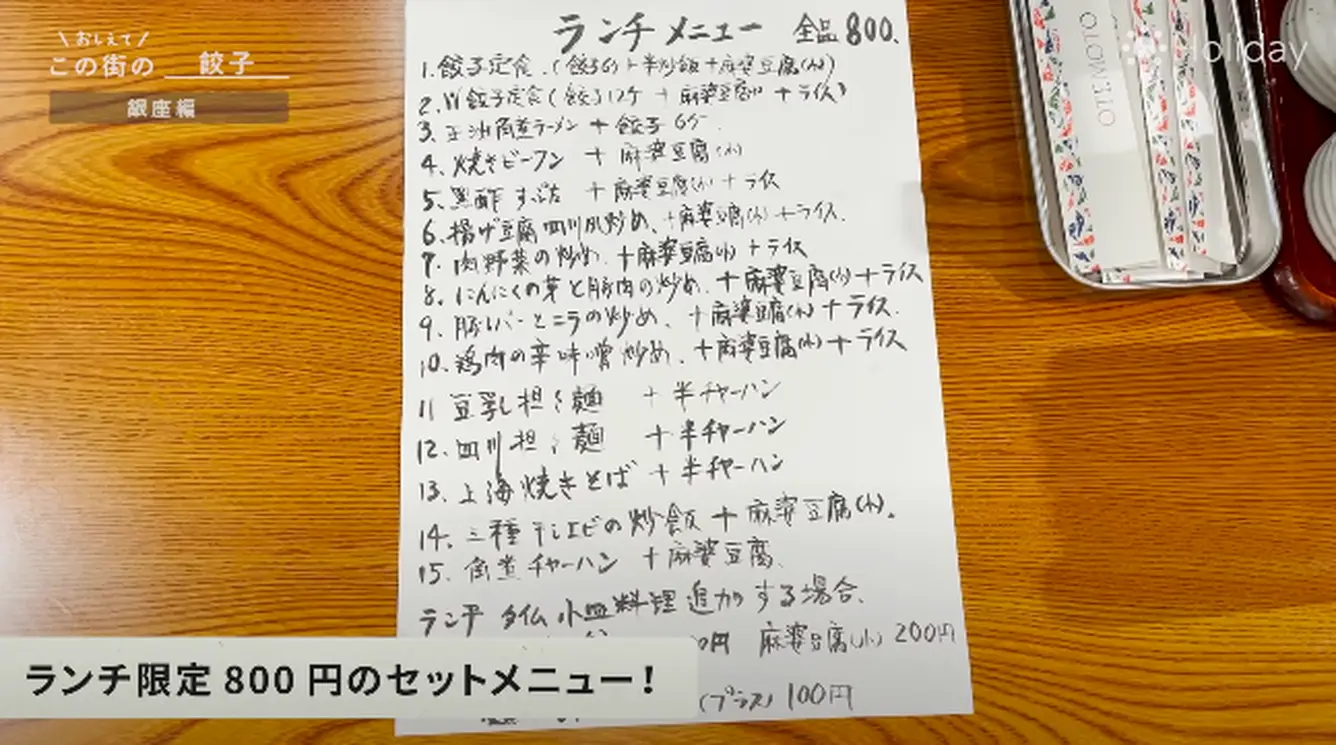 \ おしえて /
この街の 餃子
銀座編
Holiday
OTEMOTO
ランチメニュー 全品800.
1.餃子定食.(餃子6ケ+半炒飯+麻婆豆腐(小))
2.W餃子定食(餃子12ケ+麻婆豆腐+ライス)
3.正油角煮ラーメン+餃子6ケ.
4.焼きビーフン+麻婆豆腐(小)
5.黒酢すぶた+麻婆豆腐(小)+ライス
6.揚げ豆腐四川風炒め.+麻婆豆腐(小)+ライス.
7.肉野菜の炒め.+麻婆豆腐(小)+ライス
8.にんにくの芽と豚肉の炒め.+麻婆豆腐(小)+ライス
9.豚レバーとニラの炒め.+麻婆豆腐(小)+ライス.
10.鶏肉の辛味噌炒め.+麻婆豆腐(小)+ライス
11 豆乳担々麺+半チャーハン
12.四川担々麺+半チャーハン
13.上海焼きそば+半チャーハン
14.三種干しエビの炒飯+麻婆豆腐(小).
15.角煮チャーハン+麻婆豆腐.
ランチタイム小皿料理追加する場合.
0円 麻婆豆腐(小)200円
(プラス)100円
ランチ限定 800 円のセットメニュー!